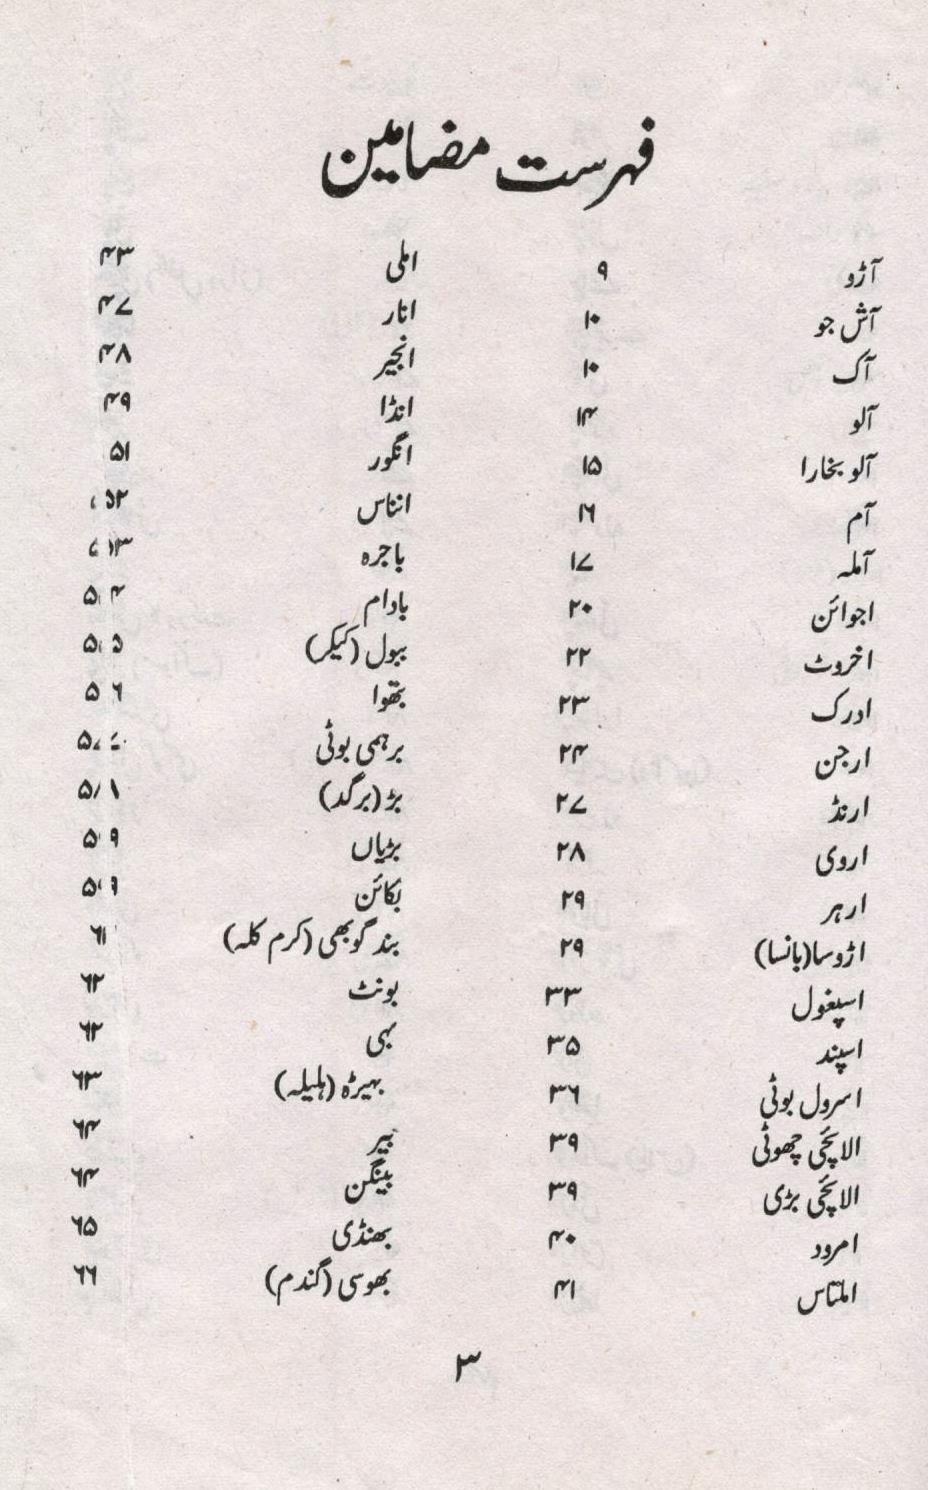 فہرست مضامین
آڑو ۹
آش جو ۱۰
آک ۱۰
آلو ۱۴
آلو بخارا ۱۵
آم ۱۶
آملہ ۱۷
اجوائن ۲۰
اخروٹ ۲۲
ادرک ۲۳
ارجن ۲۴
ارنڈ ۲۷
اروی ۲۸
ارہر ۲۹
اڑوسا(بانسا) ۲۹
اسپغول ۳۳
اسپند ۳۵
اسرول بوٹی ۳۶
الائچی چھوٹی ۳۹
الائچی بڑی ۳۹
امرود ۴۰
املتاس ۴۱
املی ۴۳
انار ۴۷
انجیر ۴۸
انڈا ۴۹
انگور ۵۱
انناس ۵۲
باجرہ
بادام ۵۴
ببول (کیکر) ۵۵
بتھوا ۵۶
برہمی بوٹی ۵۷
بڑ (برگد) ۵۸
بڑیاں ۵۹
بکائن ۵۹
بند گوبھی (کرم کلہ) ۶۱
بونٹ ۶۲
بہی ۶۲
بہیڑہ (ہلیلہ) ۶۳
بیر ۶۴
بینگن ۶۴
بھنڈی ۶۵
بھوسی (گندم) ۶۶
۳